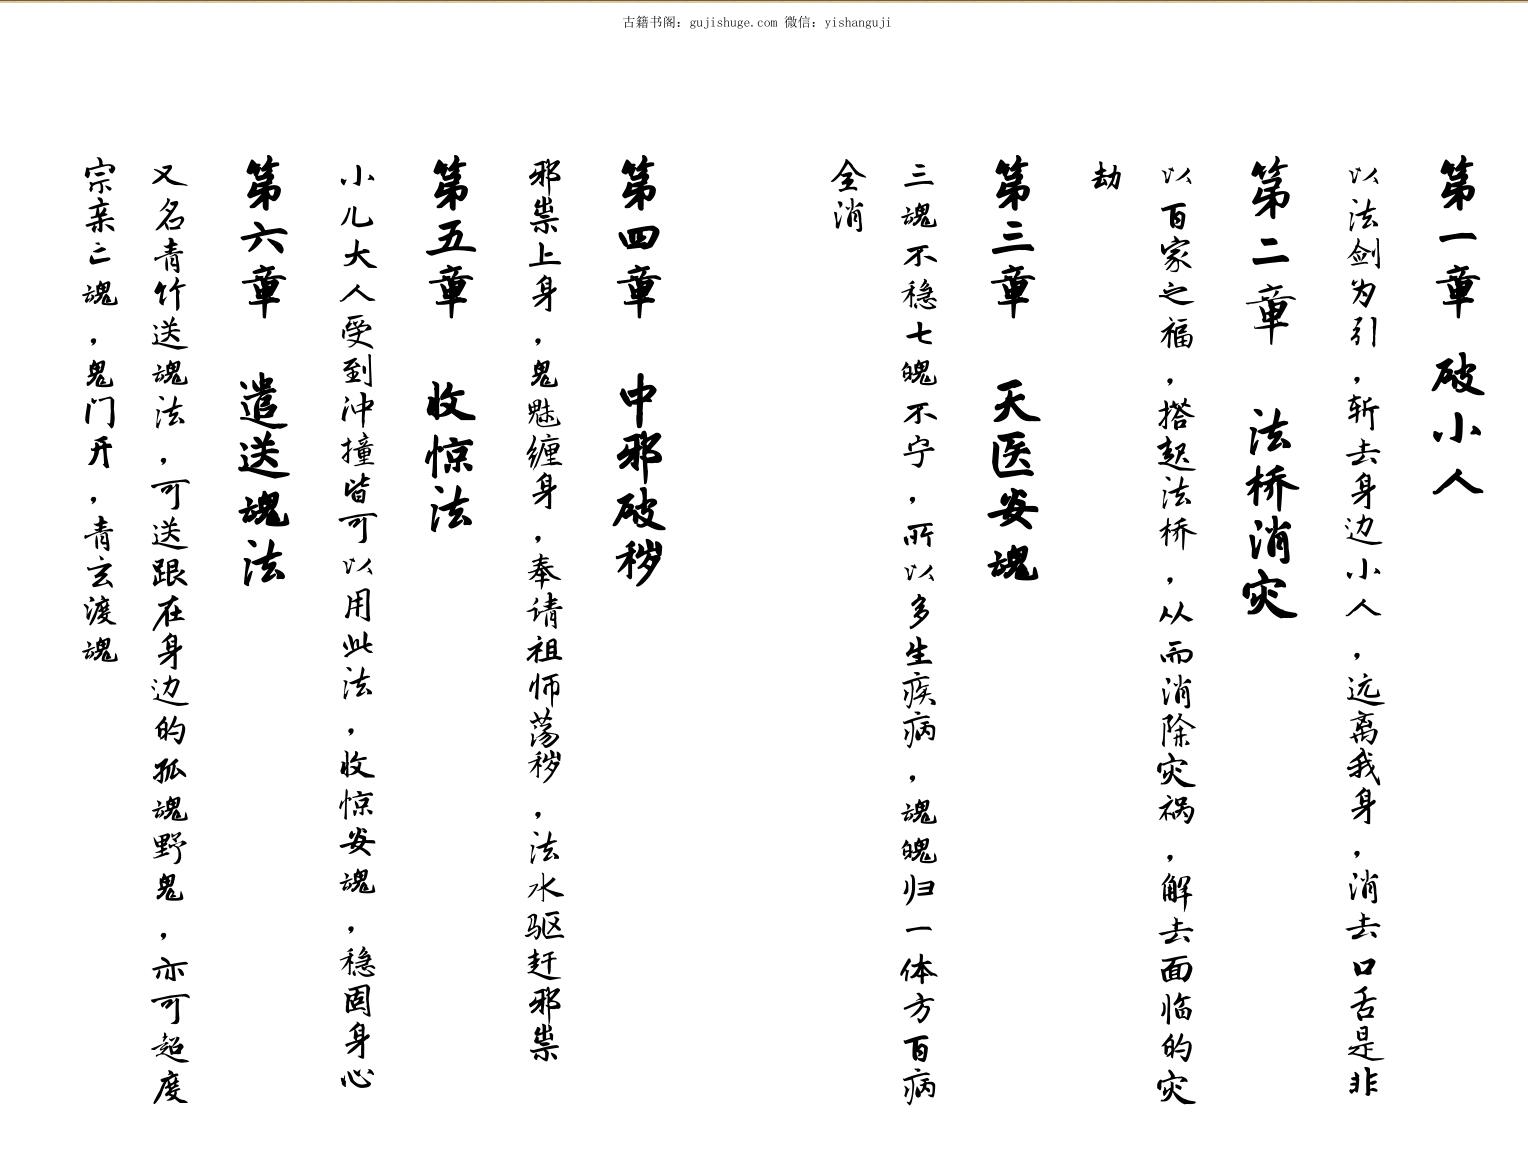 古籍书阁: gujishuge.com 微信: yishanguji
第一章 破小人
以法剑为引，斩去身边小人，远离我身，消去口舌是非
第二章 法桥消灾
以百家之福，搭起法桥，从而消除灾祸，解去面临的灾
劫
第三章 天医安魂
三魂不稳七魄不宁，所以多生疾病，魂魄归一体方百病
全消
第四章 中邪破秽
邪祟上身，鬼魅缠身，奉请祖师荡秽，法水驱赶邪祟
第五章 收惊法
小儿大人受到冲撞皆可以用此法，收惊安魂，稳固身心
第六章 遣送魂法
又名青竹送魂法，可送跟在身边的孤魂野鬼，亦可超度
宗亲亡魂，鬼门开，青玄渡魂